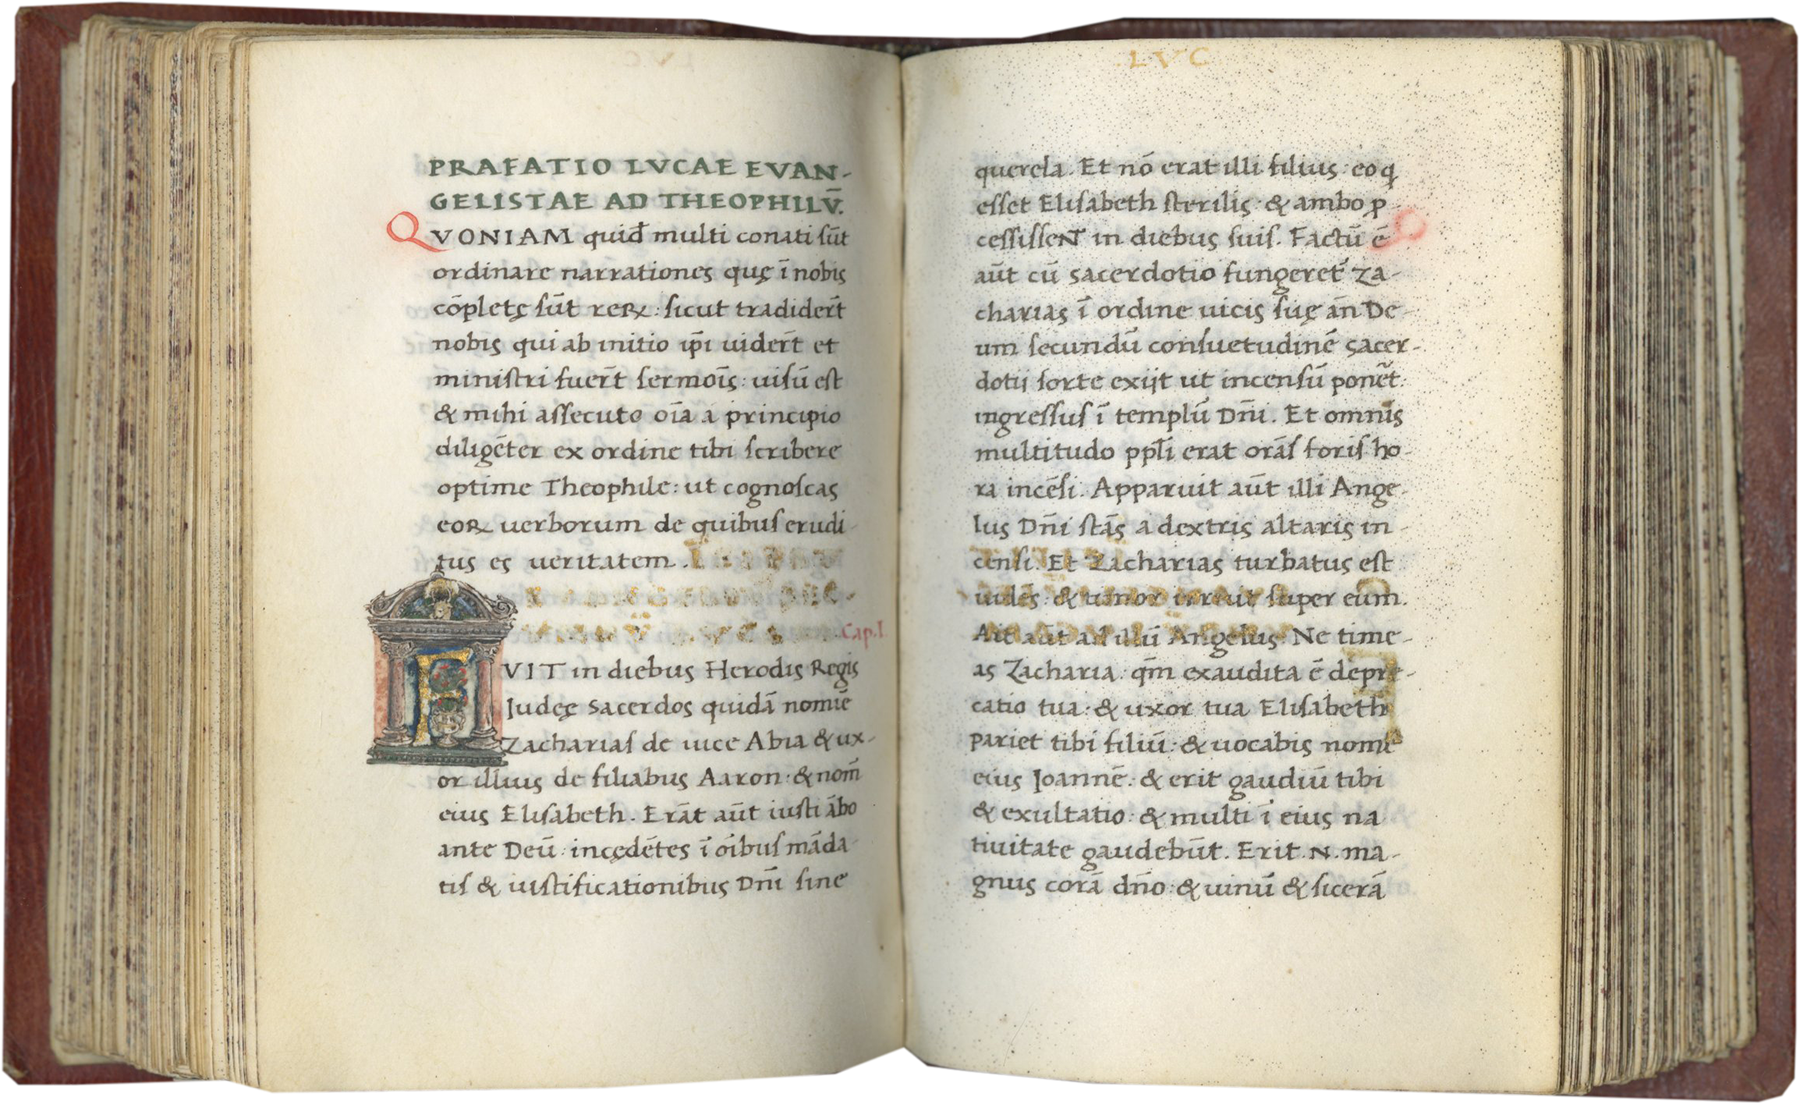 PRAEFATIO LVCAE EVAN-
GELISTAE AD THEOPHILV̄.
QVONIAM quid̄ multi conati sūt
ordinare narrationes quę ī nobis
cōpletę sūt reꝝ: sicut tradider̄t
nobis qui ab initio ip̄i uider̄t et
ministri fuer̄t sermoīs: uisū est
& mihi assecuto oīa a principio
diligēter ex ordine tibi scribere
optime Theophile: ut cognoscas
eoꝝ uerborum de quibus erudi-
tus es ueritatem.
Cap. I.
FVIT in diebus Herodis Regis
Iudeę sacerdos quidā nomīe
Zacharias de uice Abia & ux-
or illius de filiabus Aaron: & nom̄
eius Elisabeth. Erāt aūt iusti ābo
ante Deū: incędētes ī oībus māda-
tis & iustificationibus Dn̄i sine
LVC
querela. Et nō erat illi filius: eo ꝙ
esset Elisabeth sterilis: & ambo ꝓ
cessisseNT in diebus suis. Factū ē
aūt cū sacerdotio fungeret᷑ Za-
charias ī ordine uicis suę ān De-
um secundū consuetudinē sacer-
dotij sorte exijt ut incensū ponēt:
ingressus ī templū Dn̄i. Et omnis
multitudo ppl̄i erat orās foris ho-
ra incēsi. Apparuit aūt illi Ange-
lus Dn̄i stās a dextris altaris in-
censi. Et Zacharias turbatus est
uidēs: & timor irruit super eum.
Ait aūt ad illū Angelus: Ne time-
as Zacharia: qm̄ exaudita ē depre-
catio tua: & uxor tua Elisabeth
pariet tibi filiū: & uocabis nomē
eius Ioannē: & erit gaudiū tibi
& exultatio: & multi ī eius na
tiuitate gaudebūt. Erit .N. ma-
gnus corā dn̄o: & uinū & sicerā